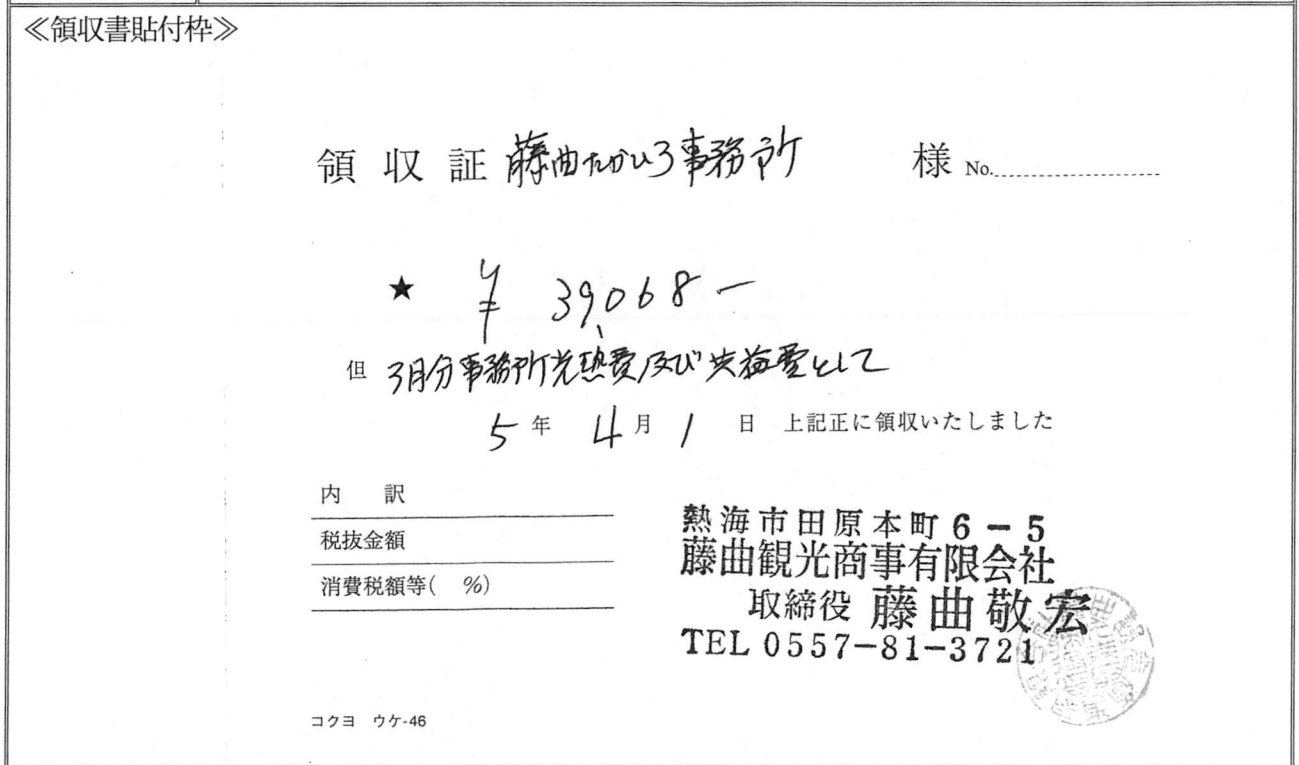 ≪領収書貼付枠≫
領収証 藤曲たかひろ事務所 様 No.
★ ¥ 39,068-
但 3月分事務所光熱費及び共益費として
5年 4月 1日 上記正に領収いたしました
内 訳
税抜金額
消費税額等( %)
熱海市田原本町6-5
藤曲観光商事有限会社
取締役 藤曲敬宏
TEL 0557-81-3721
コクヨ ウケ-46